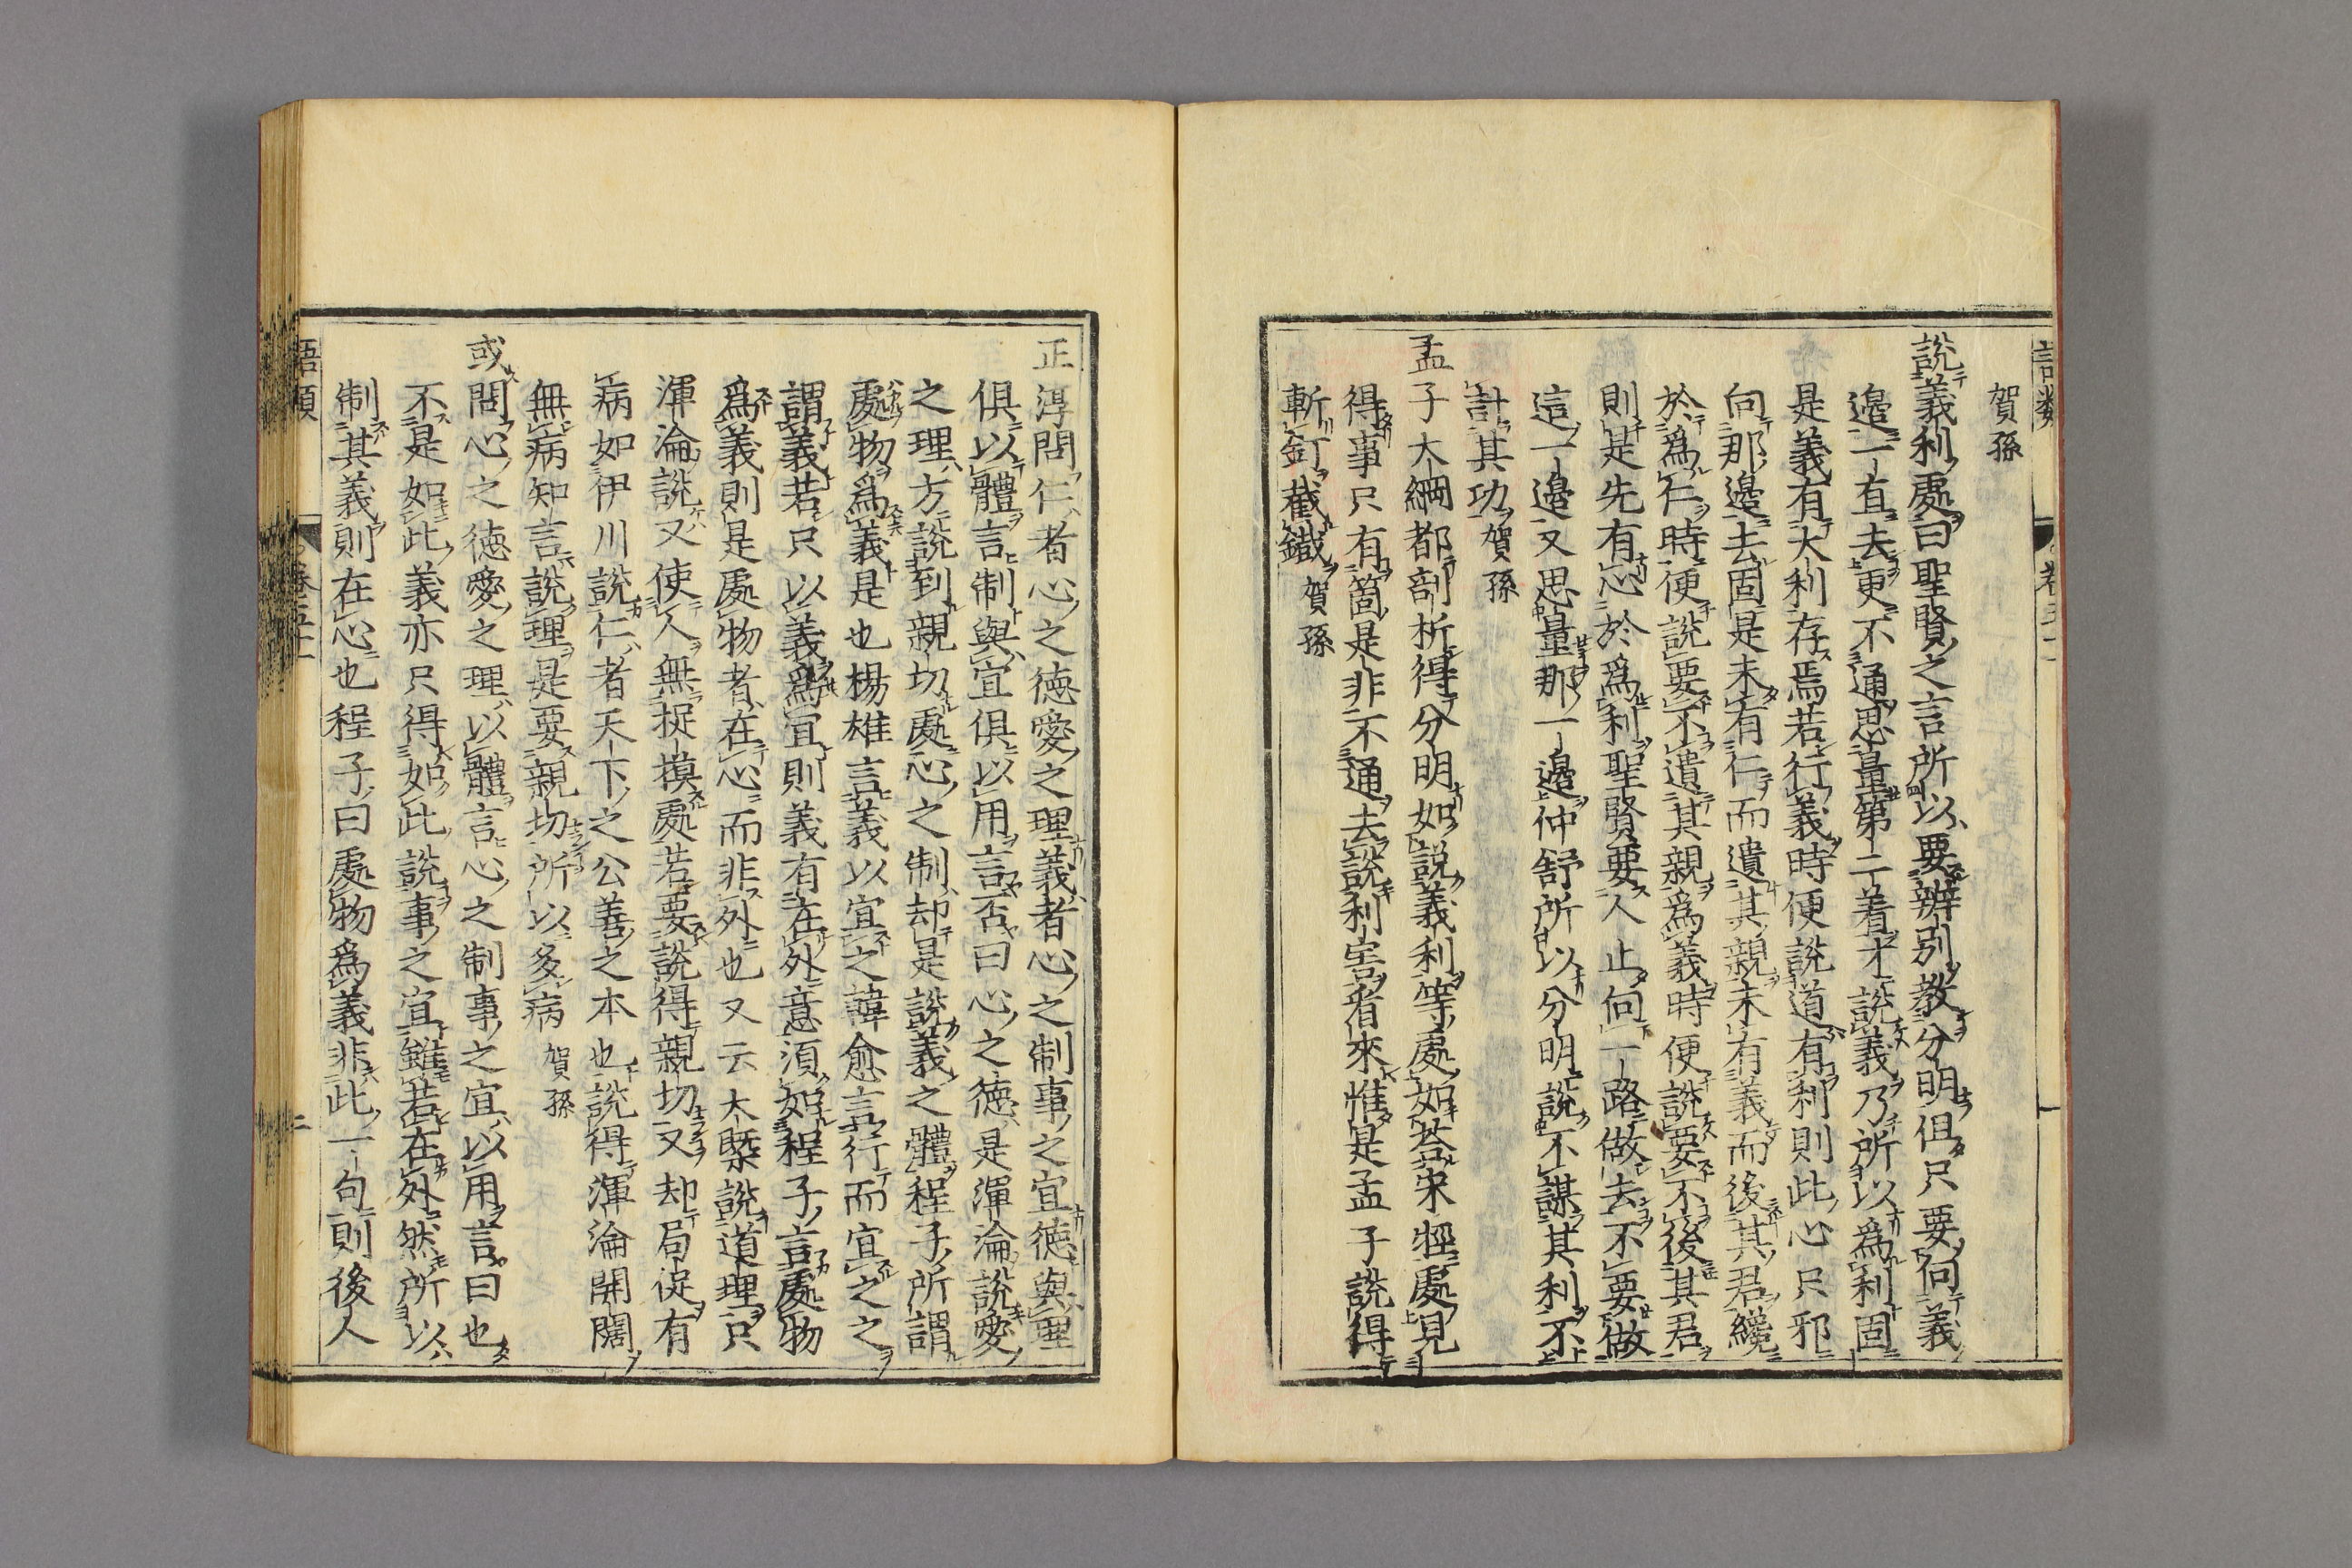 語類
卷五十一
賀孫
說義利處曰聖賢之言所以要辨別教分明但只要向義
邉一直去更不通思量第二着才說義乃所以爲利固
是義有大利存焉若行義時便說道有利則此心只邪
向那邉去固是未有仁而遺其親未有義而後其君纔
於爲仁時便說要不遺其親爲義時便說要不後其君
則是先有心於爲利聖賢要人止向一路做去不要做
這一邉又思量那一邉仲舒所以分明說不謀其利不
計其功賀孫
孟子大綱都剖析得分明如說義利等處如荅宋牼處見
得事只有箇是非不通去說利害看來惟是孟子說得
斬釘截鐵賀孫
正淳問仁者心之徳愛之理義者心之制事之宜徳與理
俱以體言制與宜俱以用言否曰心之徳是渾淪說愛
之理方說到親切處心之制却是說義之體程子所謂
處物爲義是也楊雄言義以宜之韓愈言行而宜之之
謂義若只以義爲宜則義有在外意須如程子言處物
爲義則是處物者在心而非外也又云大槩說道理只
渾淪說又使人無捉摸處若要說得親切又却局促有
病如伊川說仁者天下之公善之本也說得渾淪開闊
無病知言說理是要親切所以多病賀孫
或問心之徳愛之理以體言心之制事之宜以用言曰也
不是如此義亦只得如此說事之宜雖若在外然所以
制其義則在心也程子曰處物爲義非此一句則後人
語類
卷五十一
二